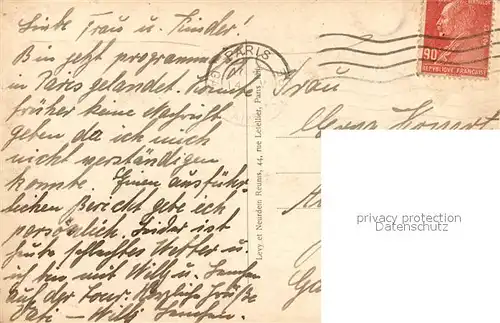 Liebe Frau u. Kinder!
Bin jetzt programm
in Paris gelandet. Konnte
früher keine Nachricht
geben da ich mich
nicht verständigen
konnte. Einen ausführ-
lichen Bericht gebe ich
persönlich. Leider ist
heute schlechtes Wetter u.
ich bin mit Willy u.
auf der Tour. Herzliche Grüße
Vati - Willi
PARIS
90
REPUBLIQUE FRANÇAISE
Levy et Neurdein Reunis, 44, rue Letellier, Paris
Frau
privacy protection
Datenschutz